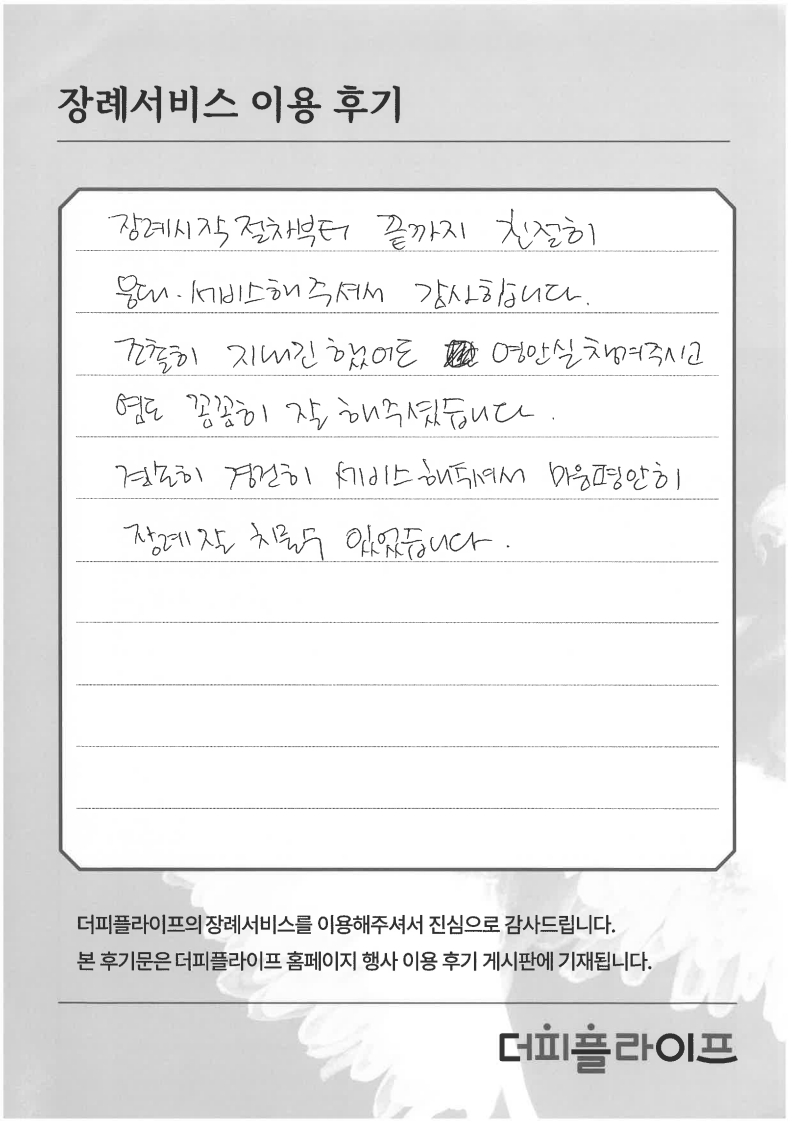 장례서비스 이용 후기
장례시작절차부터 끝까지 친절히
응대. 서비스해주셔서 감사합니다.
조촐히 지내긴 했어도 영안실 챙겨주시고
염도 꼼꼼히 잘 해주셨습니다.
겸손히 경건히 서비스해주셔서 마음평안히
장례 잘 치를수 있었습니다.
더피플라이프의 장례서비스를 이용해주셔서 진심으로 감사드립니다.
본 후기문은 더피플라이프 홈페이지 행사 이용 후기 게시판에 기재됩니다.
더피플라이프